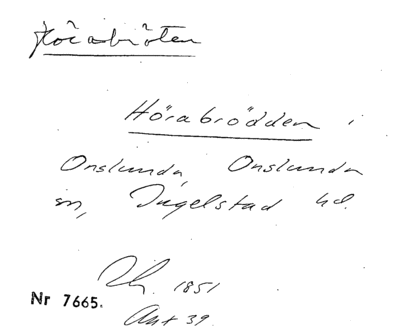 Hörabröten
Hörabrödden i
Onslunda, Onslunda
sn, Ingelstad hd.
1851
Nr 7665.
Ant 39